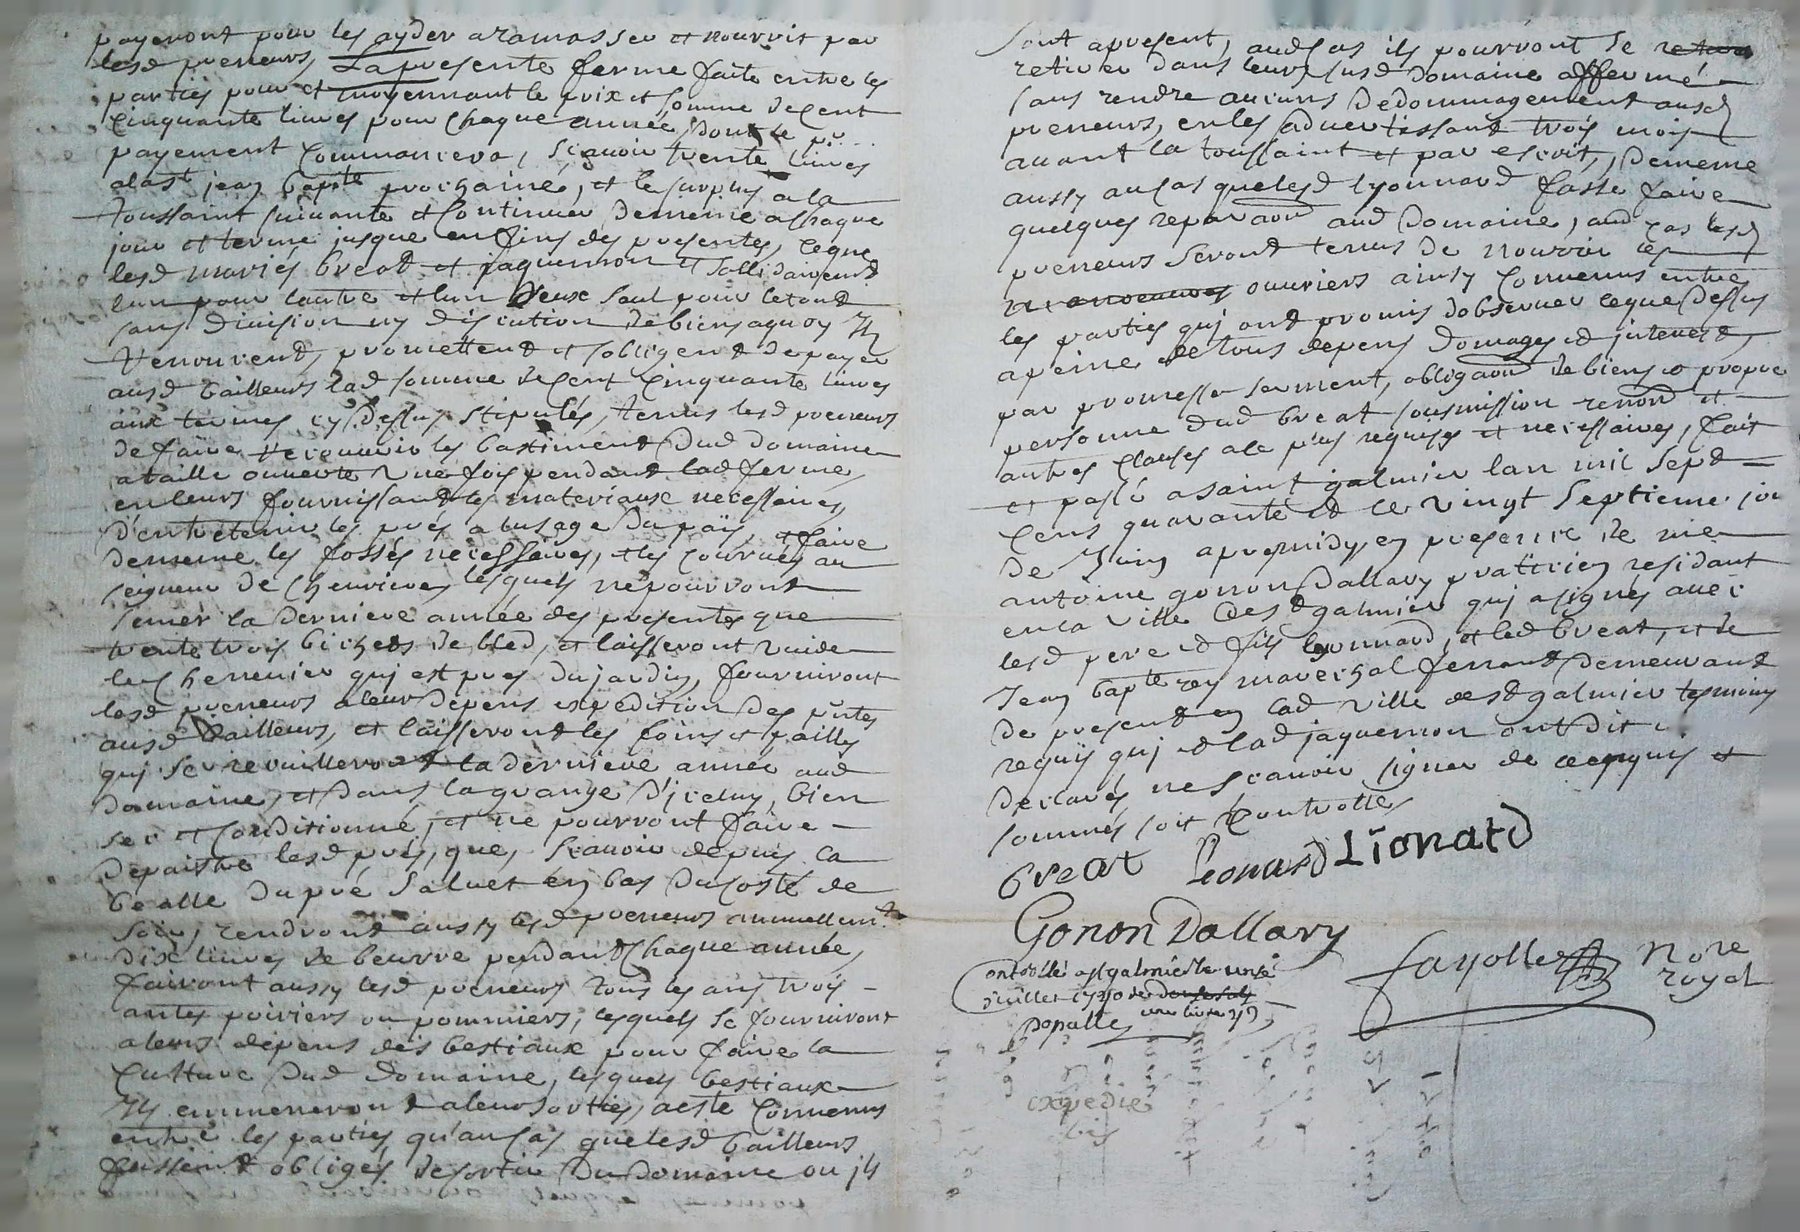 payeront pour les ayder aramasser et nourrir par
lesd preneurs, La presente ferme faite entre les
parties pour et moyennant le prix et somme de cent
cinquante livres pour chaque année, dont le p...
payement commancera, scavoir trente livres
a la st jean bapte prochaine, et le surplus a la
toussaint suivante et continuer de meme a chaque
jour et terme jusque en fins des presentes, ceque
lesd mariés breat et jaquemon et sollidairement
lun pour lautre et lun deux seul pour letout
sans division ny discution de biens aquoy Ils
renoncent, promettent et sobligent de payer
ausd bailleurs lad somme de cent cinquante livres
aux termes cy dessus stipulés, tenus lesd preneurs
de faire recouvrir les bastiment dud domaine
a taille ouverte une fois pendant lad ferme
en leurs fournissant les materiaux necessaires,
d'entretenir les prés a lusage du païs, et faire
de meme les fossés necessaires, et les courvées au
seigneur de chenrieres lesquels ne pourront
semer la derniere année des presentes que
trente trois bichets de bled, et laisseront vuide
le chenevier qui est pres du jardin, fourniront
lesd preneurs a leur depens expedition des pntes
ausd bailleurs, et laisseront les foins et pailles
qui se receuilleront la derniere année aud
Domaine, et dans la grange d'iceluy, bien
sec et conditionné, et ne pourront faire
depaistre lesd prés, que, scavoir depuis la
bealle du pré Saluet en bas du costé de
soir, rendront aussy lesd preneurs annuellemt
dix livres de beurre pendant chaque année,
fairont aussy lesd preneurs tous les ans trois
antes poiriers ou pommiers, lesquels se fourniront
a leurs depens des bestiaux pour faire la
culture dud domaine, lesquels bestiaux
Ils emmeneront a leur sorties, a esté convenus
entre les parties qu'au cas que lesd bailleurs
fussent obligés de sortir du domaine ou ils
sont apresent, audcas ils pourront se
retirer dans leurs susd domaine affermé
sans rendre aucuns dedommagement ausd
preneurs, en les advertissant trois mois
avant la toussaint et par escrit, de meme
aussy au cas que lesd lyonnard fasse faire
quelques reparaon aud domaine, aud cas lesd
preneurs seront tenus de nourrir les
ouvriers ainsy convenus entre
les parties qui ont promis dobserver ceque dessus
a peine de tous depens domages et interets,
par promesse serment, obligaon de biens et propre
personne dud breat soumission renond et
autres clauses a ce plus requises et necessaires, fait
et passé a saint galmier lan mil sept
cens quarante et ce vingt septieme jo
de Juin apresmidy en presence de me
antoine gonon dallary pratticien residant
en la ville de st galmier qui a signés avec
lesd pere et fils lyonnard, et led breat, et de
Jean bapte rey marechal ferrant demeurant
de present en lad ville de st galmier tesmoins
requis qui et lad jaquemon ont dit
declarés ne scavoir signer de ce enquis et
sommés soit controllé
breat Leonard Lionard
Gonon Dallary
fayolle Nore
royal
Controllé a st galmier le unze
juillet 1740
une livre
Popalle
expedié
bis